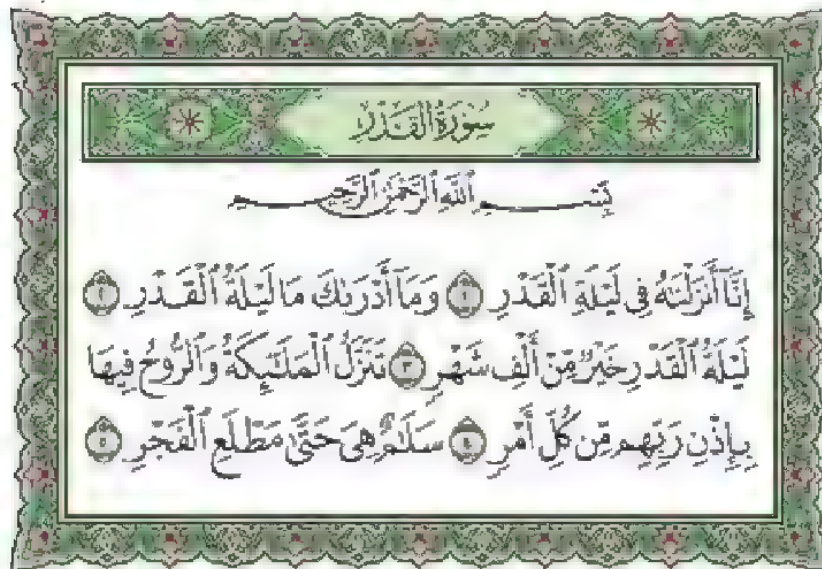 سُورَةُ الْقَدْرِ
بِسْمِ ٱللَّهِ ٱلرَّحْمَٰنِ ٱلرَّحِيمِ
إِنَّآ أَنزَلْنَٰهُ فِى لَيْلَةِ ٱلْقَدْرِ ١ وَمَآ أَدْرَىٰكَ مَا لَيْلَةُ ٱلْقَدْرِ ٢
لَيْلَةُ ٱلْقَدْرِ خَيْرٌ مِّنْ أَلْفِ شَهْرٍ ٣ تَنَزَّلُ ٱلْمَلَٰٓئِكَةُ وَٱلرُّوحُ فِيهَا
بِإِذْنِ رَبِّهِم مِّن كُلِّ أَمْرٍ ٤ سَلَٰمٌ هِىَ حَتَّىٰ مَطْلَعِ ٱلْفَجْرِ ٥